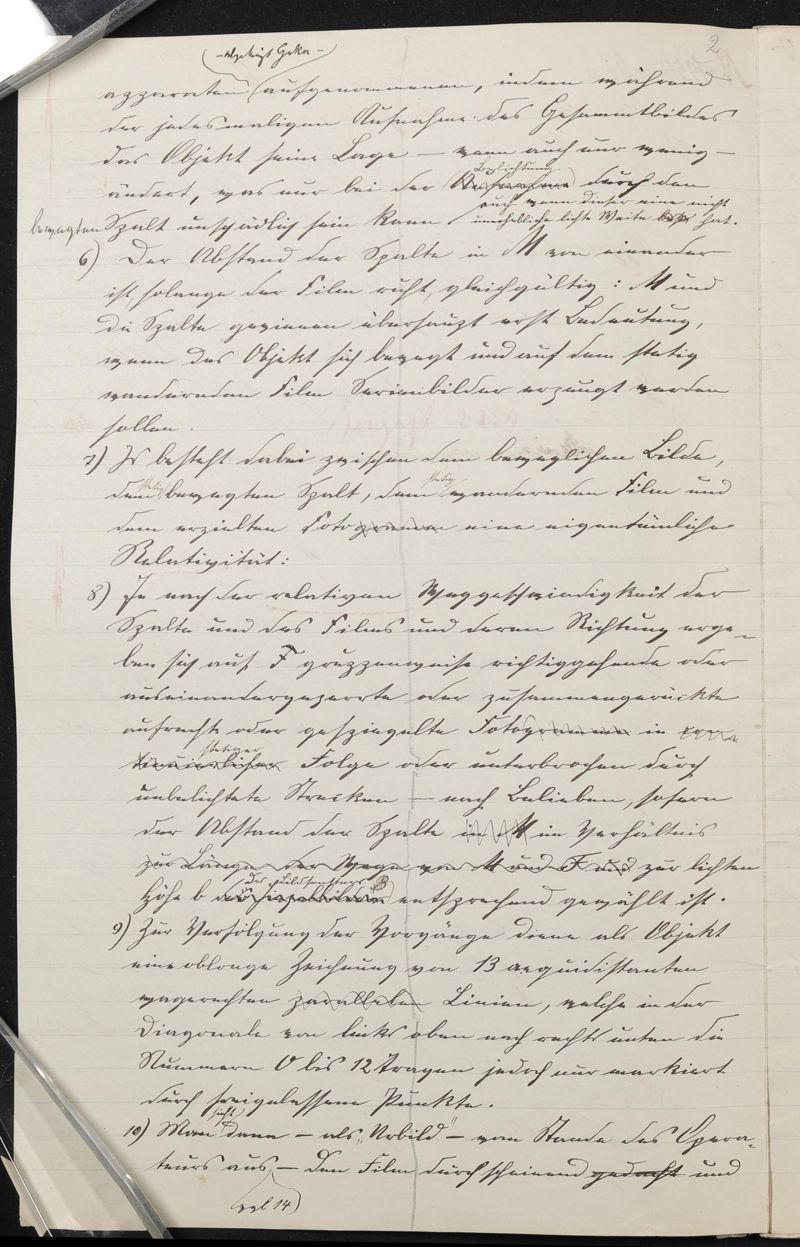 2
apparaten aufgenommenen, indem während
der jedesmaligen Aufnahme des Gesammtbildes
das Objekt seine Lage – wenn auch nur wenig –
Belichtung
ändert, was nur bei der Aufnahme durch den
auch wenn dieser eine nicht
bewegten Spalt unschädlich sein kann unerhebliche lichte Weite hat.
6) Der Abstand der Spalte in M von einander
ist, solange der Film ruht, gleichgültig: M und
die Spalte gewinnen überhaupt erst Bedeutung,
wenn das Objekt sich bewegt und auf dem stetig
wandernden Film Serienbilder erzeugt werden
sollen.
7) Es besteht dabei zwischen dem beweglichen Bilde,
stetig stetig
dem bewegten Spalt, dem wandernden Film und
dem erzielten Fotogramm eine eigentümliche
Relativität:
8) Je nach der relativen Weggeschwindigkeit der
Spalte und des Films und deren Richtung erge-
ben sich auf F gruppenweise richtiggehende oder
auseinandergezerrte oder zusammengerückte
aufrechte oder gespiegelte Fotogramme in kon
stetiger
tinuierlicher Folge oder unterbrochen durch
unbelichtete Strecken – nach Belieben, sofern
der Abstand der Spalte in M im Verhältnis
zur Länge der Wege von M und F und zur lichten
des Bildfensters B
Höhe b entsprechend gewählt ist.
9) Zur Verfolgung der Vorgänge diene als Objekt
eine oblonge Zeichnung von 13 aequidistanten
wagerechten parallelen Linien, welche in der
Diagonale von links oben nach rechts unten die
Nummern 0 bis 12 tragen jedoch nur markiert
durch freigelassene Punkte.
sieht
10) Man dann – als „Urbild“ – vom Stande des Opera-
teurs aus, – den Film durchscheinend gedacht und
vgl 14)